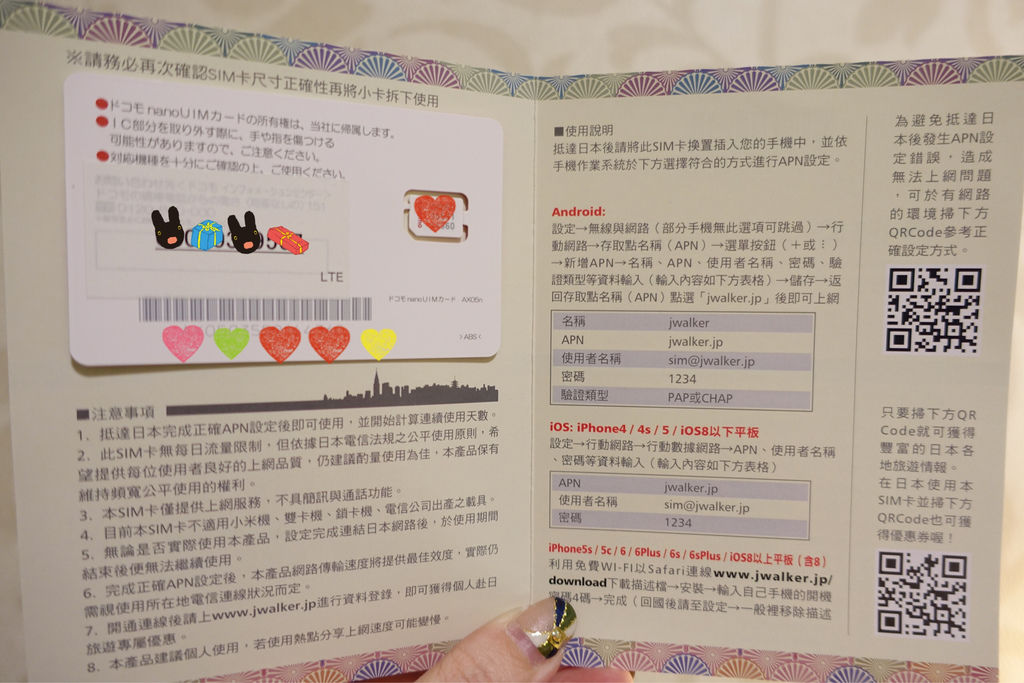 ※請務必再次確認SIM卡尺寸正確性再將小卡拆下使用
●ドコモnanoUIMカードの所有権は、当社に帰属します。
●IC部分を取り外す際に、手や指を傷つける
可能性がありますので、ご注意ください。
●対応機種を十分にご確認の上、ご使用ください。
LTE
ドコモnanoUIMカード AX05n
>ABS<
■注意事項
1、抵達日本完成正確APN設定後即可使用，並開始計算連續使用天數。
2、此SIM卡無每日流量限制，但依據日本電信法規之公平使用原則，希
望提供每位使用者良好的上網品質，仍建議酌量使用為佳，本產品保有
維持頻寬公平使用的權利。
3、本SIM卡僅提供上網服務，不具簡訊與通話功能。
4、目前本SIM卡不適用小米機、雙卡機、鎖卡機、電信公司出產之載具。
5、無論是否實際使用本產品，設定完成連結日本網路後，於使用期間
結束後便無法繼續使用。
6、完成正確APN設定後，本產品網路傳輸速度將提供最佳效度，實際仍
需視使用所在地電信連線狀況而定。
7、開通連線後請上www.jwalker.jp進行資料登錄，即可獲得個人赴日
旅遊專屬優惠。
8、本產品建議個人使用，若使用熱點分享上網速度可能變慢。
■使用說明
抵達日本後請將此SIM卡換置插入您的手機中，並依
手機作業系統於下方選擇符合的方式進行APN設定。
Android:
設定→無線與網路（部分手機無此選項可跳過）→行
動網路→存取點名稱（APN）→選單按鈕（＋或⋮）
→新增APN→名稱、APN、使用者名稱、密碼、驗
證類型等資料輸入（輸入內容如下方表格）→儲存→返
回存取點名稱（APN）點選「jwalker.jp」後即可上網
名稱 jwalker
APN jwalker.jp
使用者名稱 sim@jwalker.jp
密碼 1234
驗證類型 PAP或CHAP
iOS: iPhone4 / 4s / 5 / iOS8以下平板
設定→行動網路→行動數據網路→APN、使用者名稱
、密碼等資料輸入（輸入內容如下方表格）
APN jwalker.jp
使用者名稱 sim@jwalker.jp
密碼 1234
iPhone5s / 5c / 6 / 6Plus / 6s / 6sPlus / iOS8以上平板（含8）
利用免費WI-FI以Safari連線www.jwalker.jp/
download下載描述檔→安裝→輸入自己手機的開機
密碼4碼→完成（回國後請至設定→一般裡移除描述
為避免抵達日
本後發生APN設
定錯誤，造成
無法上網問題
，可於有網路
的環境掃下方
QRCode參考正
確設定方式。
只要掃下方QR
Code就可獲得
豐富的日本各
地旅遊情報。
在日本使用本
SIM卡並掃下方
QRCode也可獲
得優惠券喔！